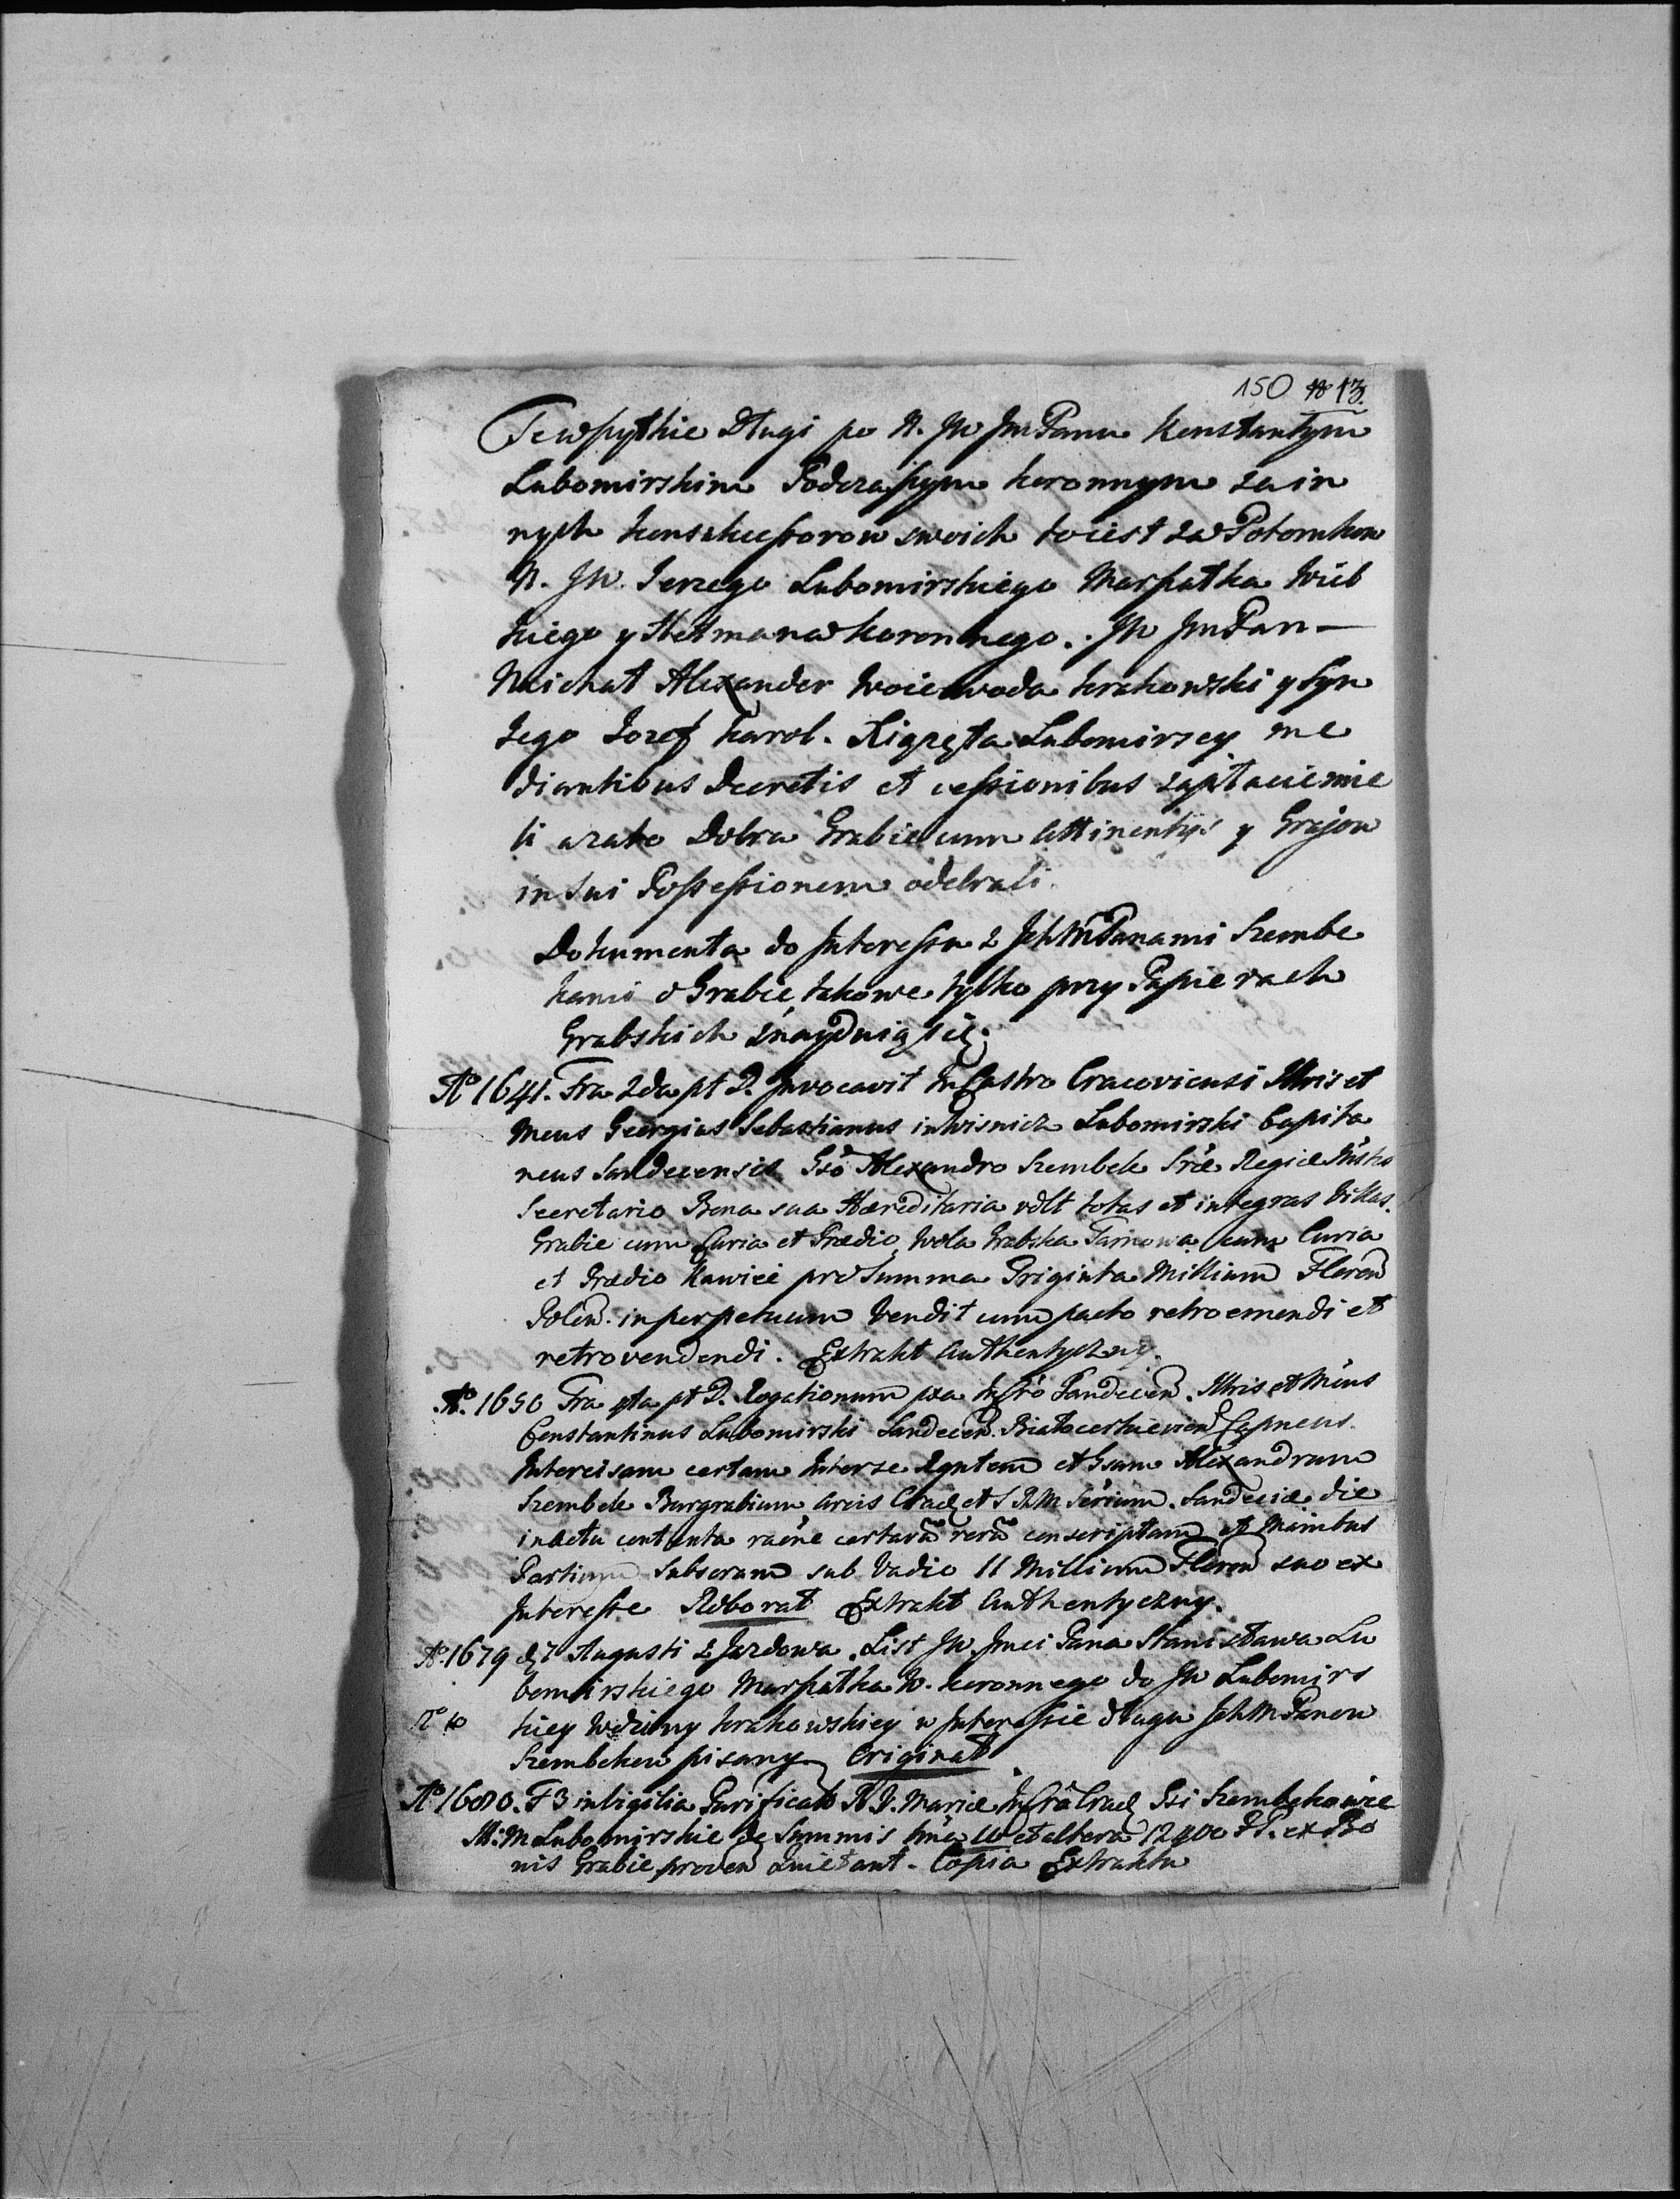 150 13.
Te wszytkie Długi po N. JW JmPanu Konstantym
Lubomirskim Podczaszym koronnym za in
nych konsukcessorow swoich to iest za Potomkow
N. JW. Jerzego Lubomirskiego Marszałka Wiel
kiego y Hetmana koronnego. JW JmPan
Michał Alexander Woiewoda krakowski y Syn
Jego Jozef Karol Xiążęta Lubomirscy me
diantibus Decretis et cessionibus zapłacic mie
li a zato Dobra Grabie cum Attinentijs y Grajow
in sui Possessionem odebrali.
Dokumenta do Interessu z JchMPanami Szembe
kami o Grabie, takowe tylko przy Papierach
Grabskich znayduią się.
Aº 1641. Fra 2da pt D. Invocavit In Castro Cracoviensi Illris et
Mcus Georgius Sebastianus in Wisnicz Lubomirski Capita
neus Sandecensis Gsõ Alexandro Szembek Sræ Regiæ Mttis
Secretario Bona sua Hæreditaria vdlt totas et integras Villas
Grabie cum Curia et Prædio Wola Grabska Tarnowa cum Curia
et Prædio Kawiei pro Summa Triginta Millium Floren
Polen. in perpetuum Vendit cum pacto retroemendi et
retrovendendi. Extrakt Authentyczny.
Aº. 1650 Fra 4ta pt D. Rogationum pxa In Crõ Sandecen. Illris et Mcus
Constantinus Lubomirski Sandecen. Białocerkievien Capneus
Intercisam certam Inter se Rgntem et Gsum Alexandrum
Szembek Burgrabium Arcis Crac et S R M Scrium Sandeciæ die
in actu contenta raõne certarũ rerũ conscriptam et Manibus
Partium Subscram sub Vadio 11 Millium Floren suo ex
Interesse Roborat Extrakt Authentyczny.
Aº. 1679 d 7 Augusti z Jazdowa List JW Jmci Pana Stanisława Lu
bomirskiego Marszałka W. koronnego do JW Lubomirs
Nº 10 kiey Wdziny krakowskiey w Interessie długu JchMPanow
Szembekow pisany Originał
Aº 1680. F 3 in Vigilia Purificatõ B. V. Mariæ In Crõ Crac Gsi Szembekowie
M: M Lubomirskie de Summis una et altera 12400 FP. ex Bo
nis Grabie proven Quietant. Copia Extraktu